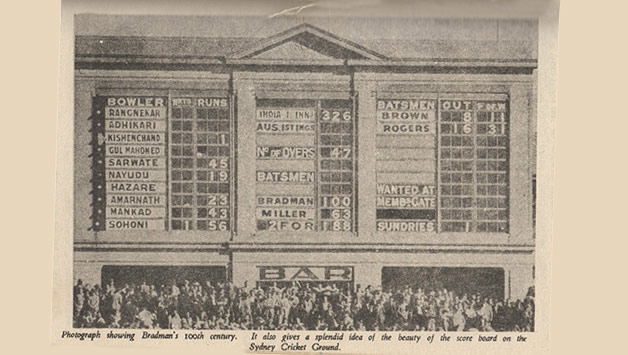 BOWLER WKTS RUNS
RANGNEKAR
ADHIKARI
KISHENCHAND 1
GUL MAHOMED
SARWATE 45
NAYUDU 19
HAZARE
AMARNATH 23
MANKAD 43
SOHONI 1 56
INDIA 1 INN 326
AUS 1ST INGS
Nº OF OVERS 47
BATSMEN
BRADMAN 100
MILLER 63
2 FOR 188
BATSMEN OUT F OF W
BROWN 8 11
ROGERS 16 31
WANTED AT
MEMBS GATE
SUNDRIES 1
BAR
Photograph showing Bradman's 100th century. It also gives a splendid idea of the beauty of the score board on the
Sydney Cricket Ground.